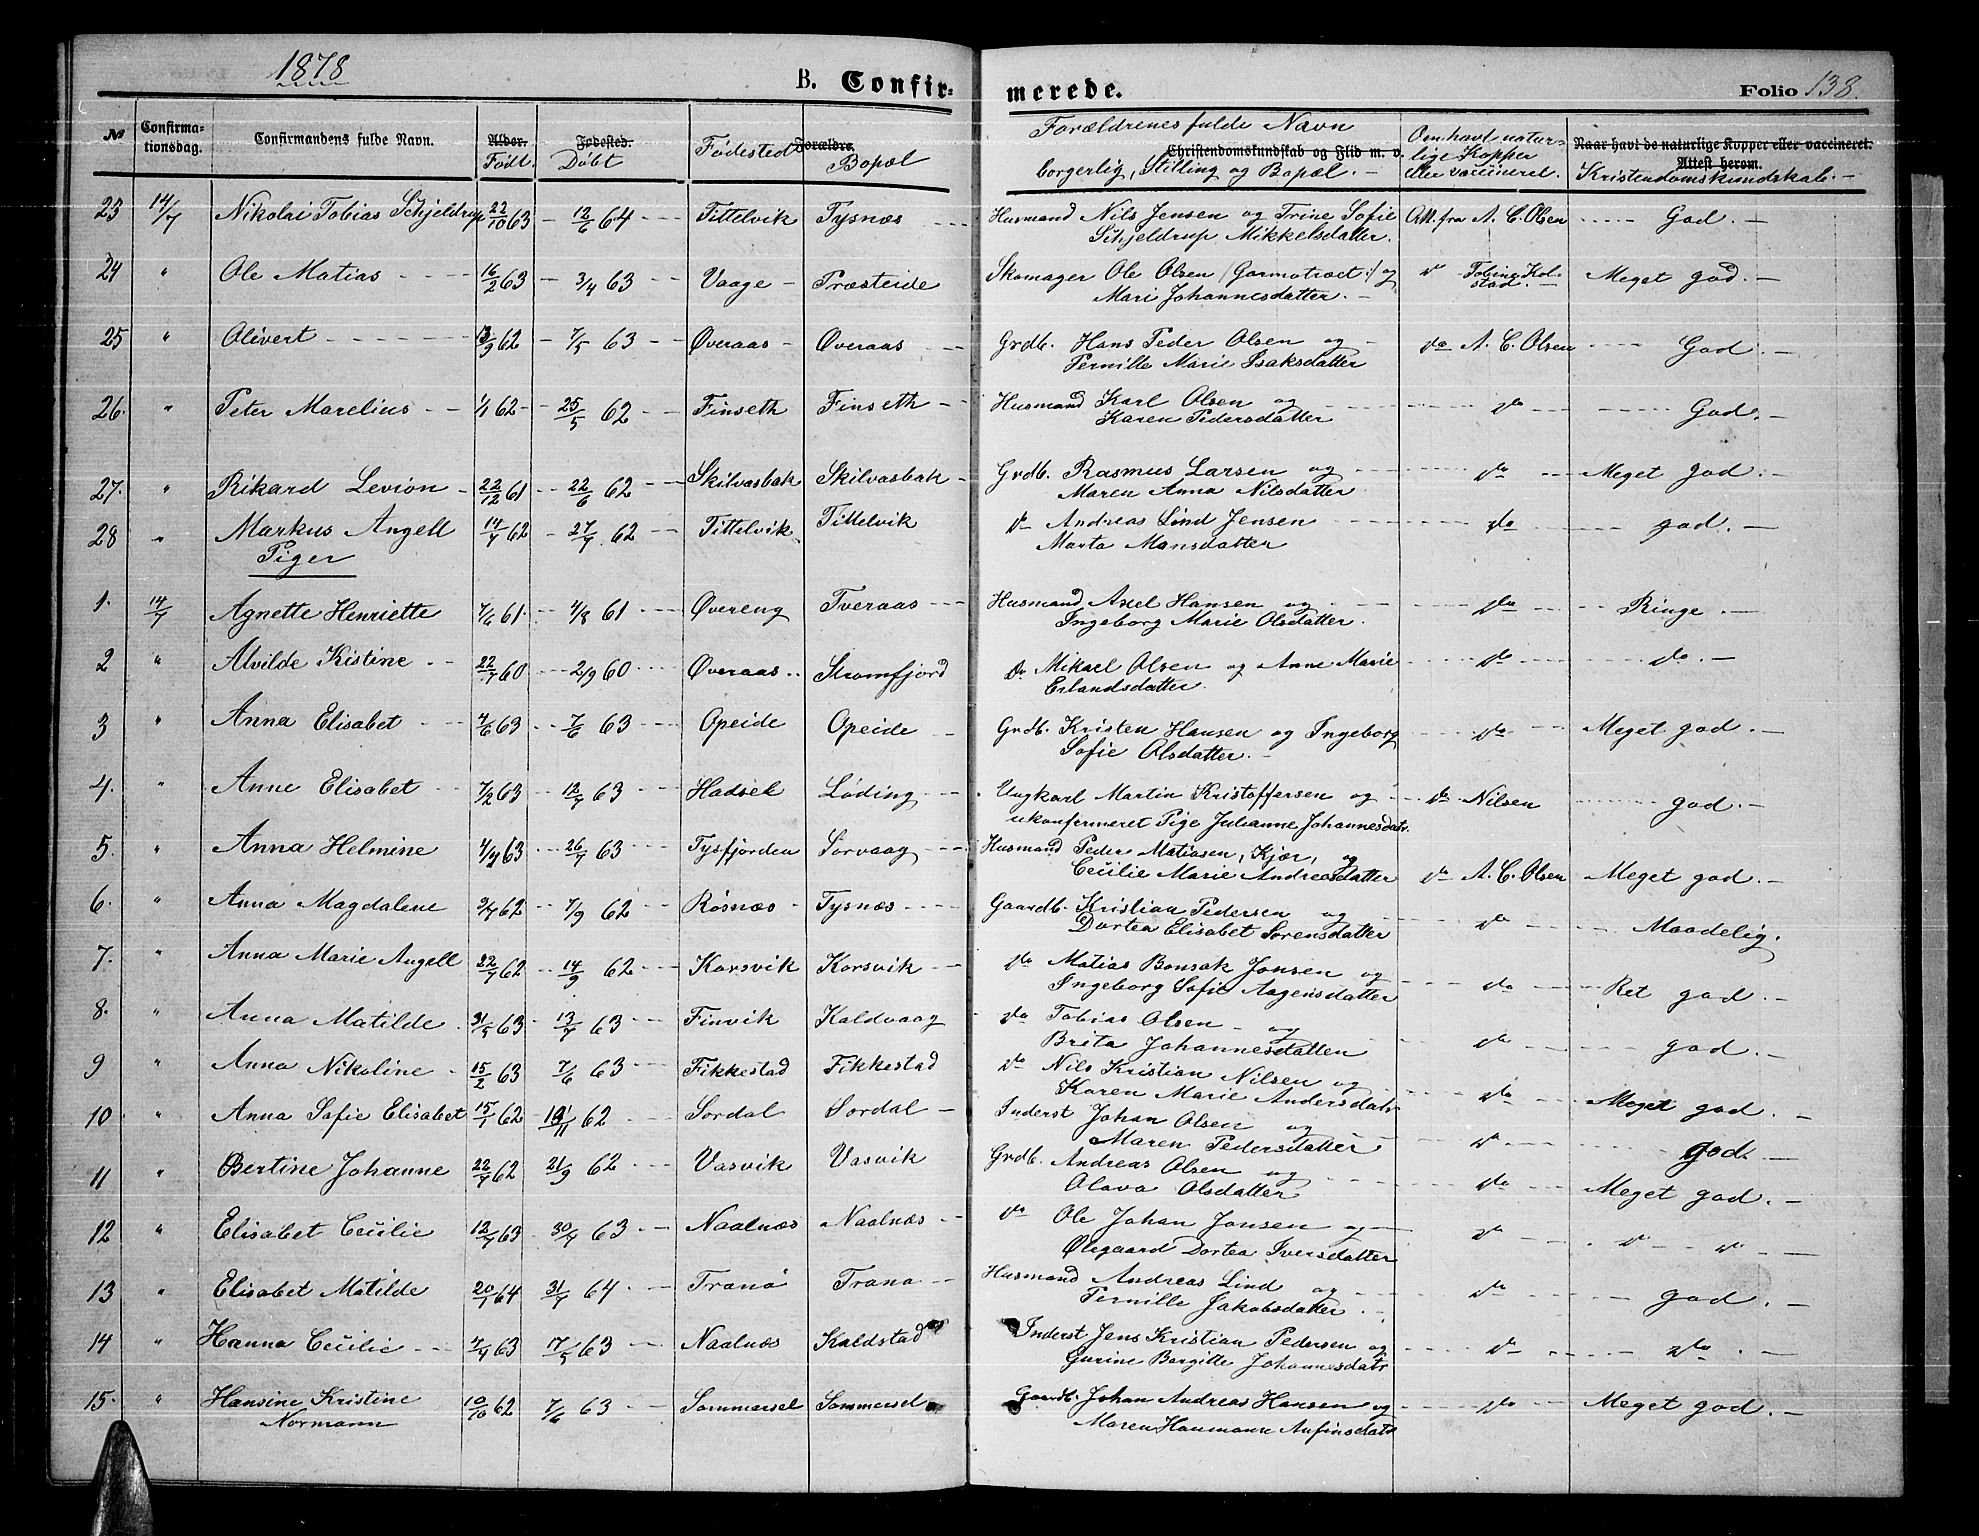 1878
B. Confir-
merede.
Folio 138.
№
Confirma-
tionsdag.
Confirmandens fulde Navn.
Alder.
Født.
Fødested.
Døbt
Forældre.
Fødested
Bopæl
Forældrenes fulde Navn
Christendomskundskab og Flid m. v.
borgerlig, Stilling og Bopæl. -
Om havt natur-
lige Kopper
eller vaccineret.
Naar havt de naturlige Kopper eller vaccineret.
Attest herom.
Kristendomskundskab. -
23 14/7 Nikolai Tobias Schjeldrup 22/10 63 - 12/6 64 - Tittelvik Tysnæs Husmand Nils Jensen og Trine Sofie Att. fra A. C. Olsen God. -
Schjeldrup Mikkelsdatter.
24 " Ole Matias 16/2 63 - 3/4 63 - Vaage - Præsteide Skomager Ole Olsen (Garmotræet:) og do Tobias Kol- Meget god. -
Mari Johannesdatter. - stad. -
25 " Olivert 13/9 62 - 7/5 63 Øveraas - Øveraas Grdb. Hans Peder Olsen og do A. C. Olsen God. -
Pernille Marie Isaksdatter
26. " Peter Marelius 1/1 62 - 25/5 62 Finseth Finseth Husmand Karl Olsen og do God. -
Karen Pedersdatter
27. " Rikard Levion 22/12 61 - 22/6 62 Skilvasbak Skilvasbak Grdb. Rasmus Larsen og do Meget god. -
Maren Anna Nilsdatter
28 " Markus Angell 14/7 62 - 27/7 62 Tittelvik Tittelvik do Andreas Lind Jensen do god. -
Marta Monsdatter
Piger
1. 14/7 Agnette Henriette 7/6 61 4/8 61 Øvereng Tveraas Husmand Axel Hansen og do Ringe. -
Ingeborg Marie Olsdatter.
2 " Alvilde Kistine 22/7 60 2/9 60 Øveraas Stromfjord Do Mikael Olsen og Anne Marie do do. -
Erlandsdatter.
3 " Anna Elisabet 4/6 63 7/6 63 Opeide Opeide Grdb. Kristen Hansen og Ingeborg do Meget god. -
Sofie Olsdatter. -
4. " Anne Elisabet 7/2 63 12/7 63 Hadsel Løding Ungkarl Martin Kristoffersen og do Nilsen god. -
ukonfirmeret Pige Julianne Johannesdatr
5. " Anna Helmine 4/7 63 26/7 63 Tysfjorden Sørvaag Husmand Peder Matiasen, Kjær, og do A. C. Olsen Meget god. -
Cecilie Marie Andreasdatter
6. " Anna Magdalene 3/7 62 7/9 62 Røsnæs Tysnæs Gaardb. Kristian Pedersen og do Maadelig.
Dortea Elisabet Sørensdatter
7. " Anna Marie Angell 22/7 62 14/9 62 Korsvik Korsvik do Matias Bonsak Jonsen og do Ret god. -
Ingeborg Sofie Aagensdatter
8. " Anna Matilde 31/5 63 13/7 63 Finvik Kaldvaag do Tobias Olsen og do god. -
Brita Johannesdatter
9 " Anna Nikoline 15/2 63 7/6 63 Fikkestad Fikkestad do Nils Kristian Nilsen og do Meget god. -
Karen Marie Andersdatr
10 " Anna Sofie Elisabet 15/1 62 /11 62 Sørdal Sørdal Inderst Johan Olsen og do god. -
Maren Pedersdatter
11 " Bertine Johanne 22/7 62 21/9 62 Vasvik Vasvik Grdb. Andreas Olsen og do Meget god. -
Olava Olsdatter
12 " Elisabet Cecilie 12/7 63 30/7 63 Naalnæs Naalnæs do Ole Johan Jonsen og do do do
Ølegaard Dortea Iversdatter
13 " Elisabet Matilde 20/1 64 31/7 64 Tranø Tranø Husmand Andreas Lind og do god. -
Pernille Jakobsdatter
14 " Hanna Cecilie 4/4 63 17/5 63 Naalnæs Kaldstad Inderst Jens Kristian Pedersen og do do
Gurine Bergitte Johannesdatr
15. " Hansine Kristine 10/10 62 7/6 63 Sommersel Sommersel Gaardb. Johan Andreas Hansen og do Meget god. -
Normann Maren Haumann Anfinsdatr